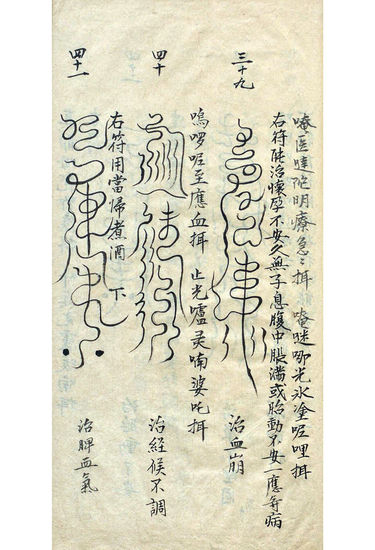 唵医哒陀明療急〻揖　唵哒唧光水塗呢哩揖
右符能治懷孕不安久無子息腹中脹滿或胎動不安一應等病
三十九
治血崩
嗚啰呢至應血揖　止光嚧灵喃婆吒揖
四十
治経候不調
右符用當帰煮酒下
四十一
治脾血氣